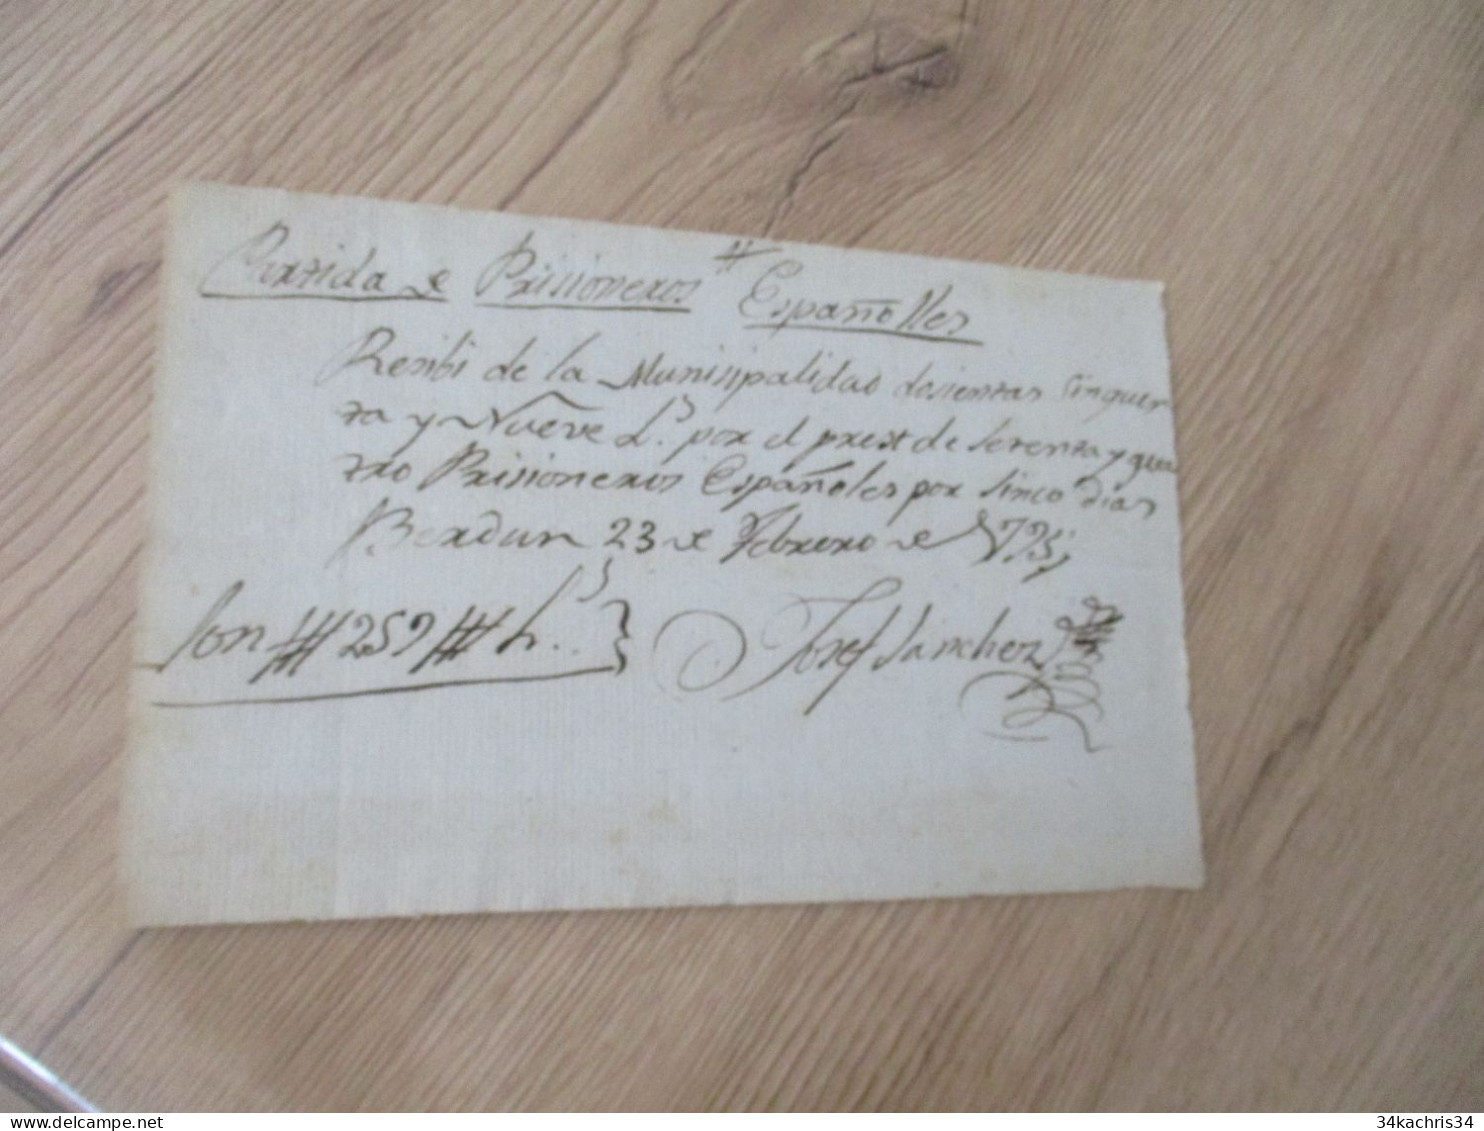 Partida de Prisioneros Españolles
Resibi de la Munisipalidad dosientas Sinquen
ta y Nueve L.s por el prest de Setenta y qua
tro Prisioneros Españoles por Sinco dias
Berdun 23 de Febrero de 1795
Son # 259 # L.s
Josef Sanchez
34kachris34